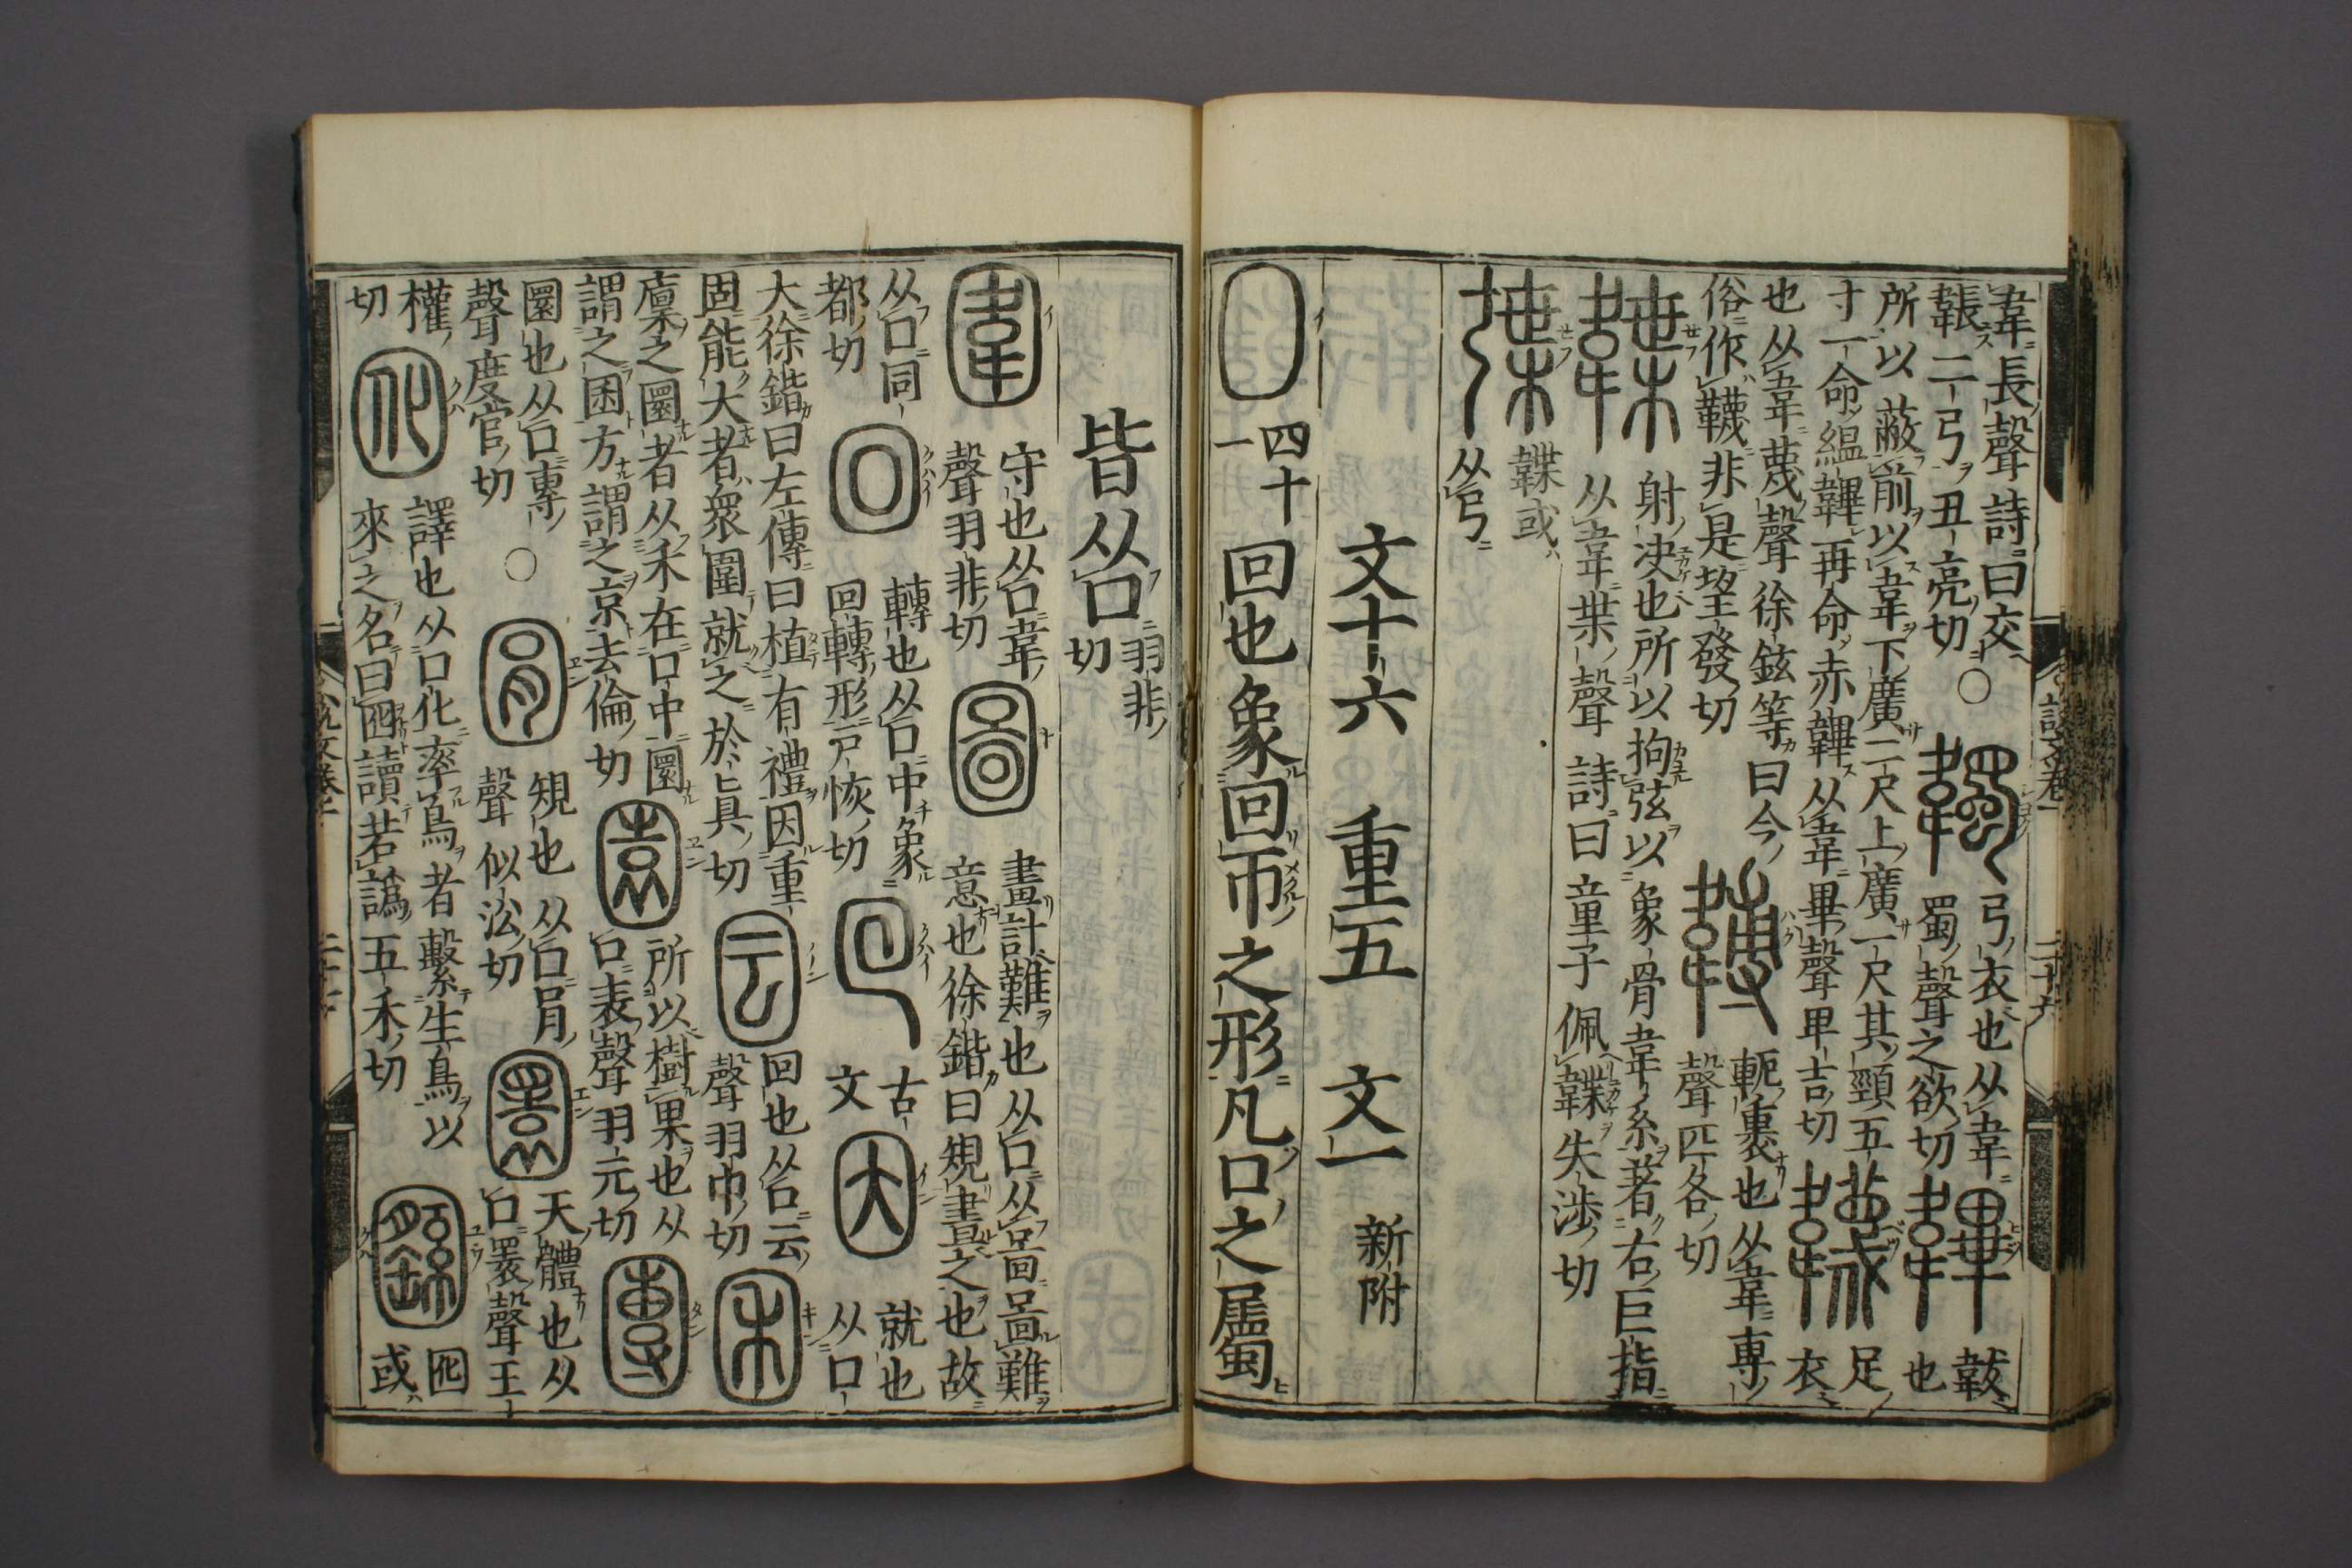 韋長聲詩曰交
韔二弓丑亮切○
韣
弓衣也从韋
蜀聲之欲切
韠
韍也
所以蔽前以韋下廣二尺上廣一尺其頸五
寸一命縕韠再命赤韠从韋畢聲卑吉切
韤
足衣
也从韋蔑聲徐鉉等曰今
俗作韈非是望發切
䪙
軛裹也从韋専
聲匹各切
韘
射決也所以拘弦以象骨韋系著右巨指
从韋枼聲詩曰童子佩韘失涉切
弽
韘或
从弓
文十六 重五 文一 新附
囗 四十一 回也象回帀之形凡囗之屬
皆从囗 羽非切
圍
守也从囗韋
聲羽非切
圖
畫計難也从囗从啚啚難
意也徐鍇曰規畫之也故
从囗同
都切
回
轉也从囗中象
回轉形戸恢切
古文
因
就也
从囗
大徐鍇曰左傳曰植有禮因重
固能大者衆圍就之於眞切
囩
回也从囗云
聲羽巾切
囷
廩之圜者从禾在囗中圜
謂之囷方謂之京去倫切
園
所以樹果也从
囗袁聲羽元切
團
圜也从囗專
聲度官切
○
圓
規也从囗肙
聲似沿切
圜
天體也从
囗睘聲王
權切
囮
譯也从囗化率鳥者繫生鳥以
來之名曰囮讀若譌五禾切
囮或
説文卷十二
二十六